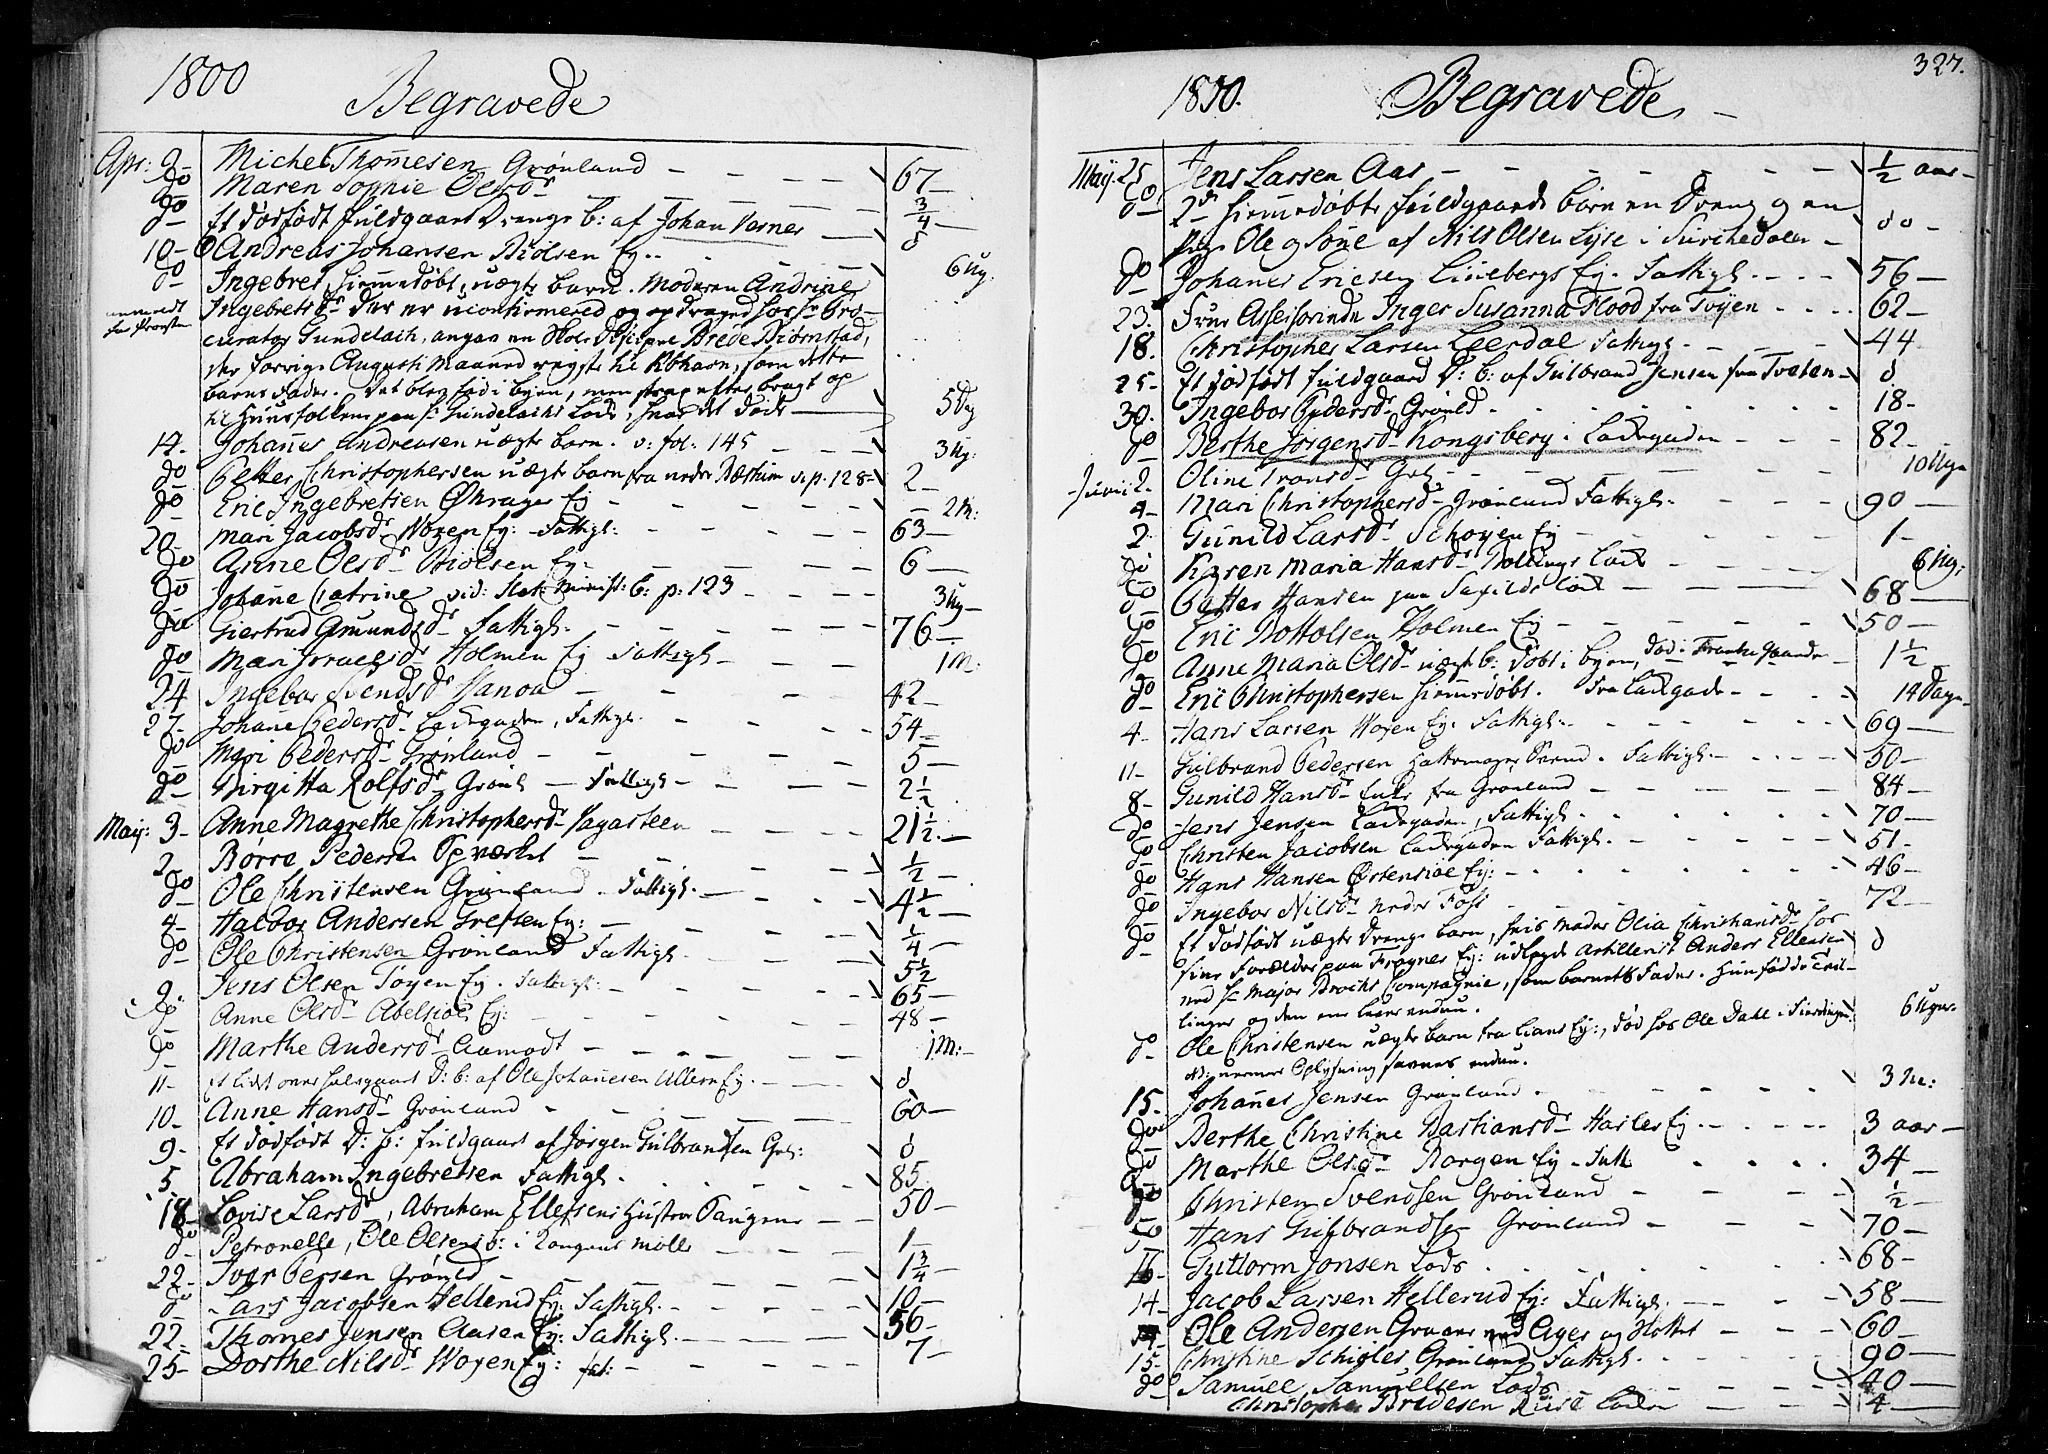 1800
Begravede
Apr: 2- Michel Thomesen Grønland - 67-
do Maren Sophie Olsdr - 3/4-
do Et dødfødt fuldgaaet Drenge b: af Johan Verner - d
10- Andreas Johansen Biølsen Ey.. - 6 Ug:
do Ingebret, hiemmedøbt, uægte barn. Moderen Andrine
anmeldt for Provsten
Ingebretsdr der er uconfirmered og opdraged hos Hr Pro-
curator Gundelach, angav en Skole Discipel Brede Biørnstad,
der forrige Augusti Maaned reyste til Kbhavn, som dette
barns Fader. Det blev fød i byen, men strax efter bragt op
til Huusfolkene paa Hr Gundelachs Løkke, hvor det døde - 5 Dg
14. Johannes Andreasen uægte barn. v: fol. 145 - 3 Ug:
do Petter Christophersen uægte barn fra nedre Bæstum v. p. 128 - 2-
do Eric Ingebretsen Økrager Ey - 2 M:
20- Mari Jacobsdr Woxen Ey: Fattigl: - 63-
do Anne Olsdr Biølsen Ey: - 6-
do Johane Catrine vid: Slots Minist: b: p: 123 - 3 Ug-
do Giertrud Amundsdr Fattigl. - 76-
do Mari Israelsdr Holmen Ey Fattigl - 1 M:
24 Ingebor Svendsdr Hanoa - 42-
27- Johane Pedersdr Ladegaden, Fattigl. - 54-
do Mari Pedersdr Grønland - 5-
do Birgitta Rolfsdr Grønl - Fattigl - 2 1/2
Maij: 3- Anne Magrethe Christophersdr Hagasteen - 21 1/2.-
2- Børre Pedersen Opværket - 1/2-
do Ole Christensen Grønland. Fattigl. - 4 1/2-
4- Halvor Andersen Grefsen Ey: - 1/4-
do Ole Christensen Grønland Fattigl. - 5 1/2
9- Jens Olsen Tøyen Ey. Fattigl: - 65-
do Anne Olsdr Abelsiøe Ey: - 48-
do Marthe Andersdr Aamodt - 1 M:-
11- Et lidet over halvgaaet D: b: af Ole Johannesen Ullern Ey. - d
10- Anne Hansdr Grønland - 60-
9- Et dødfødt D: b: fuldgaaet af Jørgen Gulbrandsen Grl: d
5 Abraham Ingebretsen Fattigl. - 85.
18- Lovise Larsdr, Abraham Ellefsens Hustrue - 50-
do Petronelle, Ole Olsens b: i Kongens Mølle - 1-
22- Iver Persen Grønld - 1 3/4-
do Lars Jacobsen Hellerud Ey: Fattigl. - 10-
22- Thomes Jensen Aasen Ey: Fattigl. - 56-
25- Dorthe Nilsdr Woxen Ey: fat: - 7-
327.
1800.
Begravede -
Maij: 25 Jens Larsen Aas - 1/2 aar-
do 2de hiemmedøbte fuldgaaede børn en Dreng og en
Pige Ole og Sine af Nils Olsen Lyse i Sørchedalen - dd-
do Johanes Ericsen Linebergs Ey. Fattigl. - 56-
23. Frue Assessorinde Inger Susanna Flood fra Tøyen - 62-
18. Christopher Larsen Leerdal Fattigl. - 44
25- Et dødfødt fuldgaaed D: b: af Gulbrand Jensen fra Tveten - d
30. Ingebor Pedersdr Grønld. - 18-
do Berthe Jørgensdr Kongsberg i Ladegaden - 82-
Junii 2. Oline Transdr Grl. - 10 Uger
4- Mari Christophersd- Grønland Fattigl. - 90-
2. Gunild Larsdr Schøyen Ey - 1-
do Karen Maria Hansdr Løck - 6 Ug:
do Petter Hansen paa Løck - 68-
do Eric Bottolsen Holmen Ey - 50-
do Anne Maria Olsdr uægte b: døbt i byen, - 1 1/2-
do Eric Christophersen hiemmedøbt. fra Ladegade - 14 Dage
4- Hans Larsen Woxen Ey: Fattigl: - 69-
11- Gulbrand Pedersen Hattemager Svend. Fattigl. - 50-
8- Gunild Hansdr Enke fra Grønland - 84-
do Jens Jensen Ladegaden, Fattigl. - 70-
do Christen Jacobsen Ladegaden Fattigl. - 51-
do Hans Hansen Østensiøe Ey: - 46-
do Ingebor Nilsdr nedre Foss - 72-
do Et dødfødt uægte Drenge barn, hvis Moder Olia Christiansdr hos
sine Forældre paa Frogner Ey: udlagde Artillerist Anders Ellensen - d
ved Hr Major Brochs Compagnie, som barnets Fader. Hun fødde Tvil-
linger og den ene lever endnu.
do Ole Christensen uægte barn fra Lians Ey:, død hos Ole Dahl i - 6 Uger
NB: nermere Oplysning savnes endnu.
15. Johannes Jensen Grønland. - 3 Ug:
do Berthe Christine Bastiansd- Hasle Ey. - 3 aar-
do Marthe Olsdr Borgen Ey - Fatt - 34-
do Christen Svendsen Grønland - 1/2-
do Hans Gulbrandsen Grønland - 70-
16- Guttorm Jonsen Lods - 68-
14- Jacob Larsen Hellerud Ey: Fattigl. - 58-
Ole Andersen Graver ved Ager og Slottet - 60-
15- Christine Grønland Fattigl. - 90-
do Samuel Samuelsen Lods - 40-
Christopher Bredesen - 4-